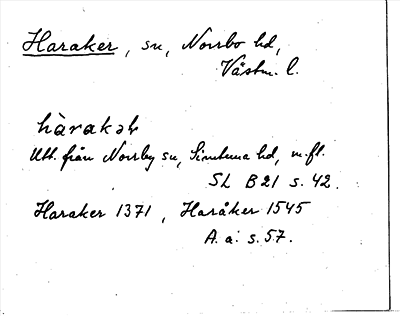 Haraker, sn, Norrbo hd,
Västm. l.
hàrakər
Utt. från Norrby sn, Simtuna hd, m.fl.
SL B21 s. 42.
Haraker 1371, Haråker 1545
A. a. s. 57.